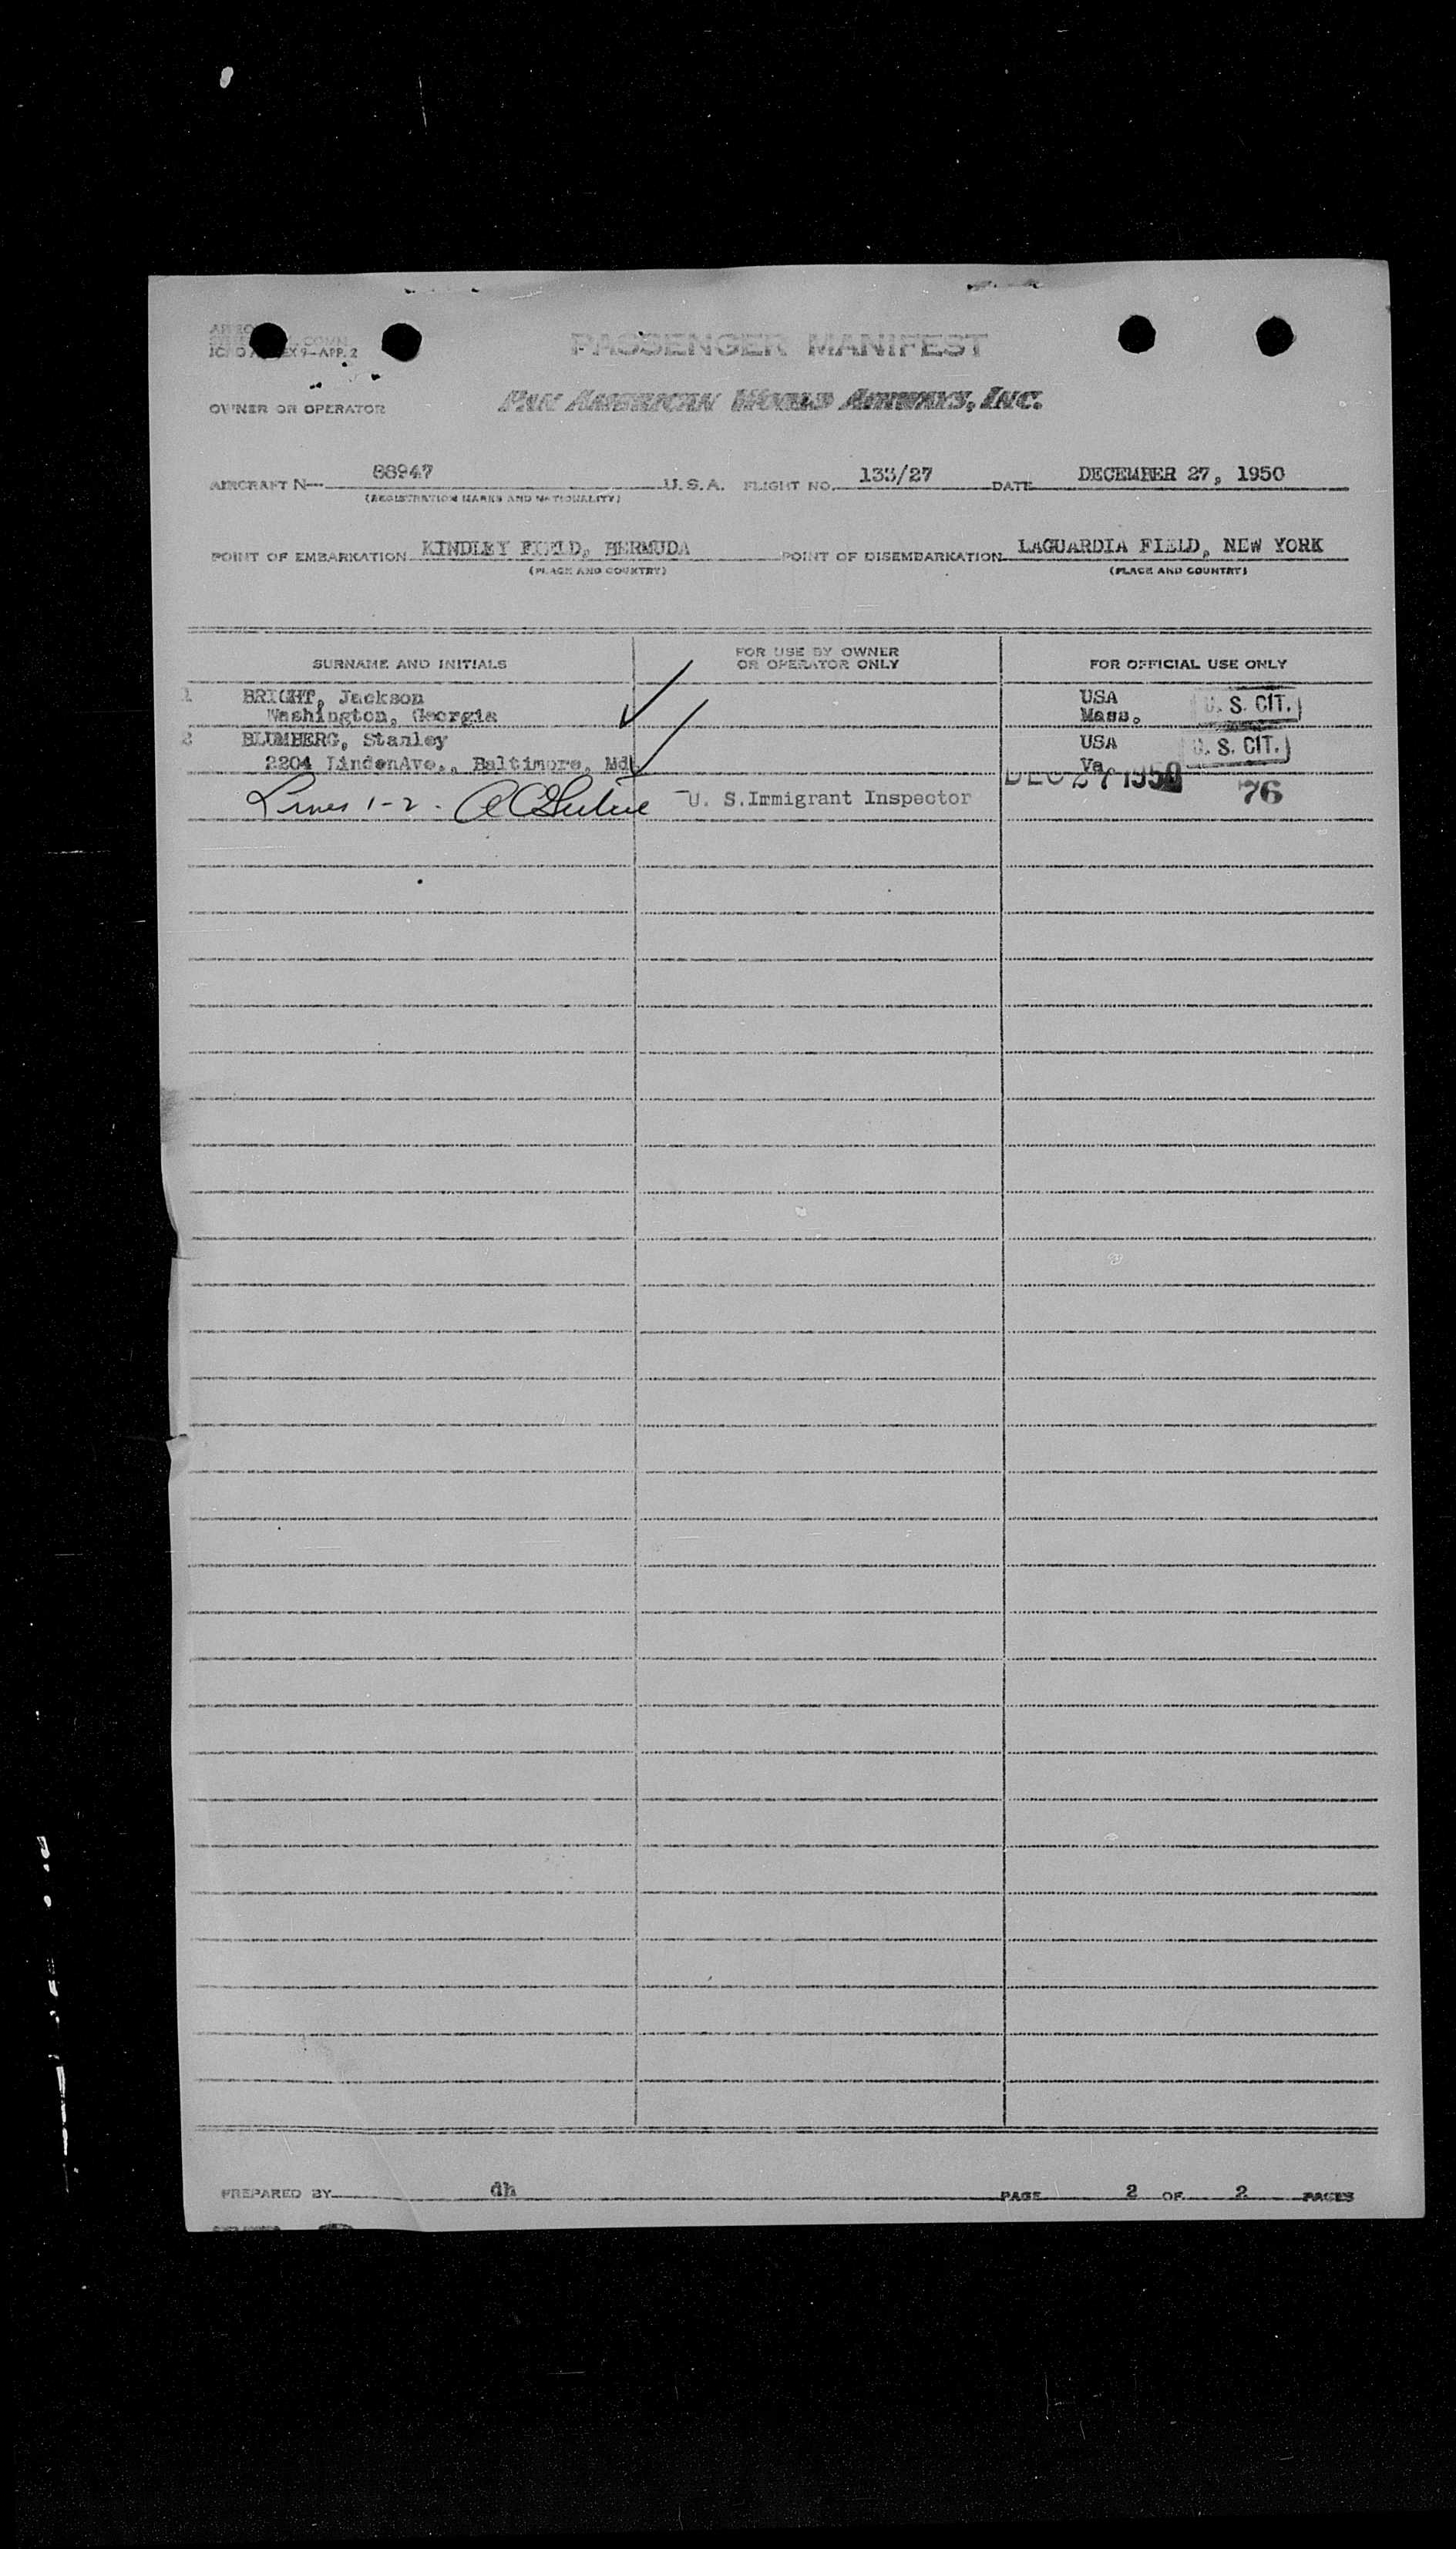 PASSENGER MANIFEST
ICAO ANNEX 9-APP. 2
OWNER OR OPERATOR PAN AMERICAN WORLD AIRWAYS, INC.
AIRCRAFT N- 88947 U.S.A. FLIGHT NO. 133/27 DATE DECEMBER 27, 1950
(REGISTRATION MARKS AND NATIONALITY)
POINT OF EMBARKATION KINDLEY FIELD, BERMUDA POINT OF DISEMBARKATION LAGUARDIA FIELD, NEW YORK
(PLACE AND COUNTRY) (PLACE AND COUNTRY)
SURNAME AND INITIALS FOR USE BY OWNER OR OPERATOR ONLY FOR OFFICIAL USE ONLY
1 BRIGHT, Jackson USA U. S. CIT.
Washington, Georgia Mass.
2 BLUMBERG, Stanley USA U. S. CIT.
2204 LindenAve., Baltimore, Md. Va
DEC 27 1950 76
Lines 1-2 - U. S.Immigrant Inspector
PREPARED BY dh PAGE 2 OF 2 PAGES